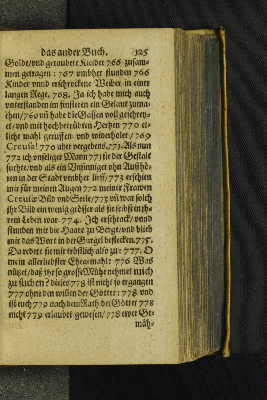 das ander Buch. 125
Golde/vnd geraubete Kleider 766 zusam-
men getragen : 767 vmbher stunden 766
Kinder vnnd erschrockene Weiber in einer
langen Rege. 768. Ja ich habe mich auch
vnterstanden im finsteren ein Gelaut zuma-
chen/769 vñ habe die Gassen voll geschrey-
et/vnd mit hochbetrübten Hertzen 770 et-
liche mahl geruffen/ vnd widerholet/769
Creusa! 770 aber vergebens. 771. Als nun
772 ich vnseliger Mann 773 sie der Gestalt
suchte/vnd als ein Vnsinniger ohn Auffhö-
ren in der Stadt vmbher lieff/773 erschien
mir für meinen Augen 772 meiner Frawen
Creusæ Bild vnd Seele/773 vñ war solch
ihr Bild ein wenig grösser als sie selbst in ih-
rem Leben war. 774. Ich erschrack/vnnd
stunden mir die Haare zu Berge/vnd blieb
mir das Wort in der Gurgel bestecken. 775.
Da redete sie mir tröstlich also zu: 777. O
mein allerliebster Ehegemahl: 776 Was
nützet/daß ihr so grosse Mühe nehmet mich
zu suchen? dieses 778 ist nicht so ergangen
777 ohne den willen der Götter: 778 vnd
ist euch 779 nach dem Rath der Götter 778
nicht 779 erlaubet gewesen/778 ewer Ge-
mäh-